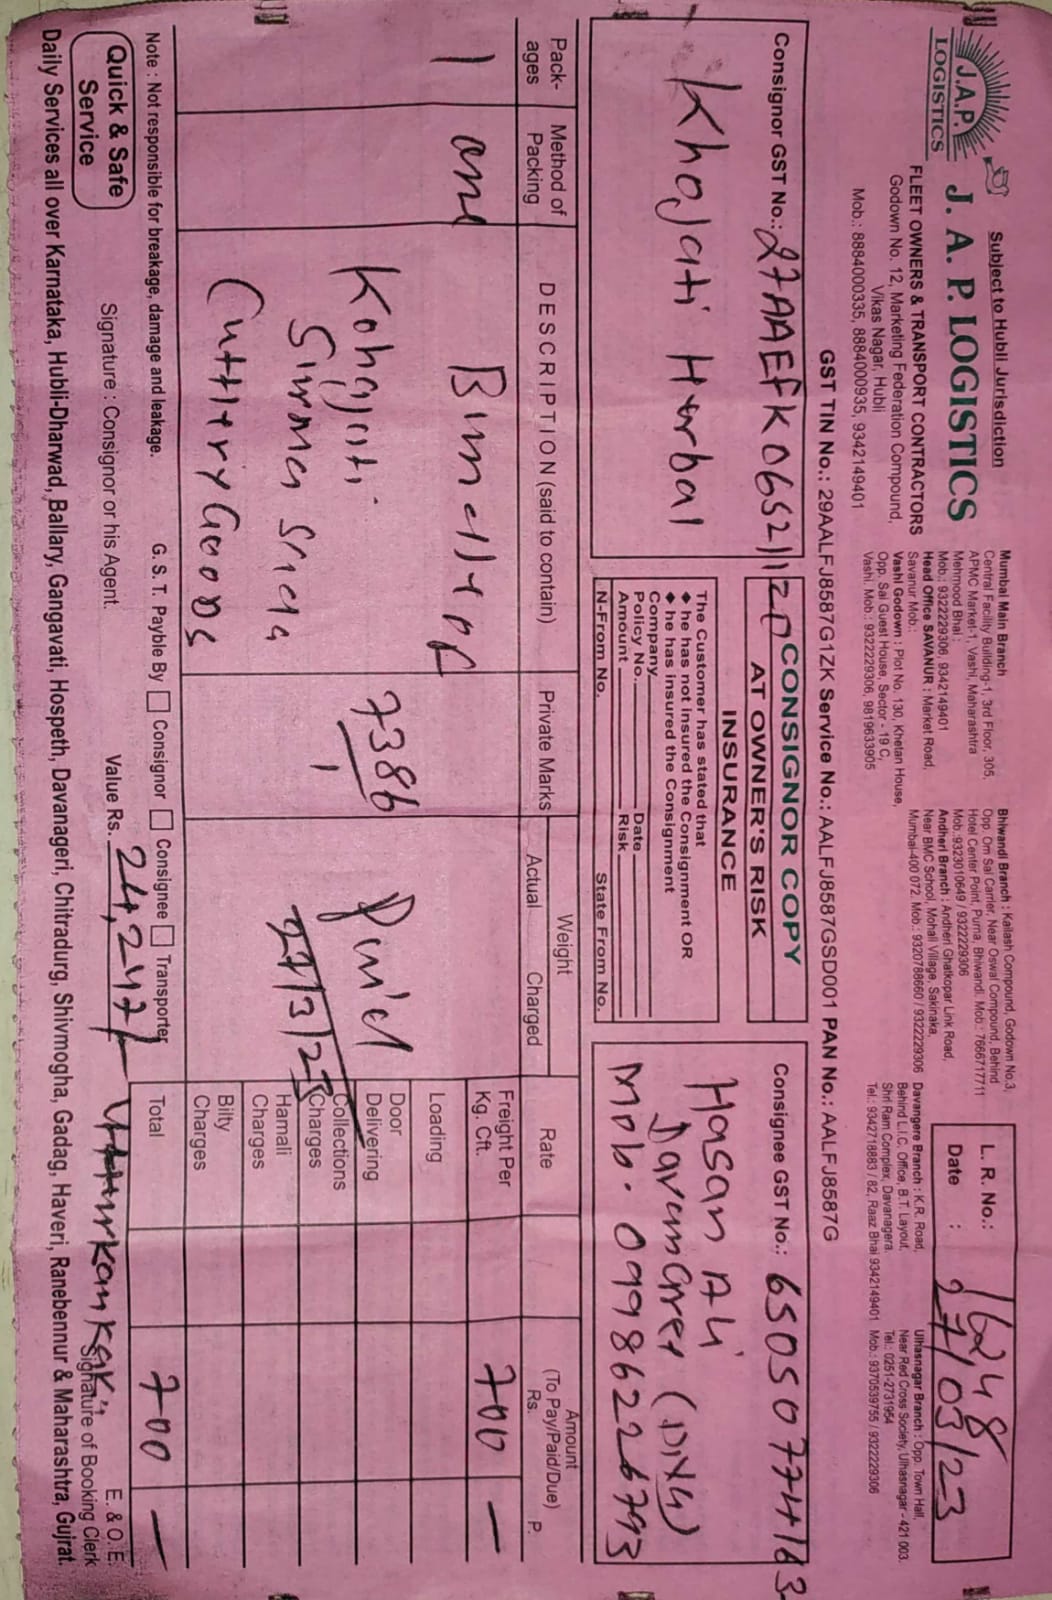 Subject to Hubli Jurisdiction
J.A.P.
LOGISTICS
J. A. P. LOGISTICS
FLEET OWNERS & TRANSPORT CONTRACTORS
Godown No. 12, Marketing Federation Compound,
Vikas Nagar, Hubli
Mob.: 8884000335, 8884000935, 9342149401
Mumbai Main Branch
Central Facility Building-1, 3rd Floor, 305,
APMC Market-1, Vashi, Maharashtra
Mehmood Bhai :
Mob.: 9322229306, 9342149401
Head Office SAVANUR : Market Road,
Savanur Mob.:
Vashi Godown : Plot No. 130, Khetan House,
Opp. Sai Guest House, Sector - 19 C,
Vashi. Mob.: 9322229306, 9819633905
Bhiwandi Branch : Kailash Compound, Godown No 3,
Opp. Om Sai Carrier, Near Oswal Compound, Behind
Hotel Center Point, Purna, Bhiwandi. Mob.: 7666717711
Mob.:9323010649 / 9322229306
Andheri Branch : Andheri Ghatkopar Link Road,
Near BMC School, Mohali Village, Sakinaka,
Mumbai-400 072. Mob.: 9320788660 / 9322229306
Davangere Branch : K.R. Road,
Behind L.I.C. Office, B.T. Layout,
Shri Ram Complex, Davanagera.
Tel.: 9342718883 / 82, Raaz Bhai 9342149401
Ulhasnagar Branch : Opp. Town Hall,
Near Red Cross Society, Ulhasnagar - 421 003.
Tel.: 0251-2731954
Mob.: 9370539755 / 9322229306
L. R. No.: 16248
Date : 27/03/23
GST TIN No.: 29AALFJ8587G1ZK Service No.: AALFJ8587GSD001 PAN No.: AALFJ8587G
Consignor GST No.: 27AAEFK0652
Khojati Herbal
CONSIGNOR COPY
AT OWNER'S RISK
INSURANCE
The Customer has stated that
♦ he has not insured the Consignment OR
♦ he has insured the Consignment
Company
Policy No. Date
Amount Risk
N-From No. State From No.
Consignee GST No.: 6505077
Hasan Ali
Mob. 09986226793
Pack-ages
Method of Packing
DESCRIPTION (said to contain)
Private Marks
Weight
Actual
Charged
Rate
Amount
(To Pay/Paid/Due)
Rs. P.
1
Kohgjati
Surma
Cuttlery Goods
7386
27/3/23
Freight Per Kg. Cft. 700 —
Loading
Door Delivering
Collections Charges
Hamali Charges
Bilty Charges
Total 700 —
Note : Not responsible for breakage, damage and leakage.
G. S. T. Payble By Consignor Consignee Transporter
Quick & Safe
Service
Signature : Consignor or his Agent.
Value Rs. 24,247/-
E. & O. E.
Signature of Booking Clerk
Daily Services all over Karnataka, Hubli-Dharwad, Ballary, Gangavati, Hospeth, Davanageri, Chitradurg, Shivmogha, Gadag, Haveri, Ranebennur & Maharashtra, Gujrat.